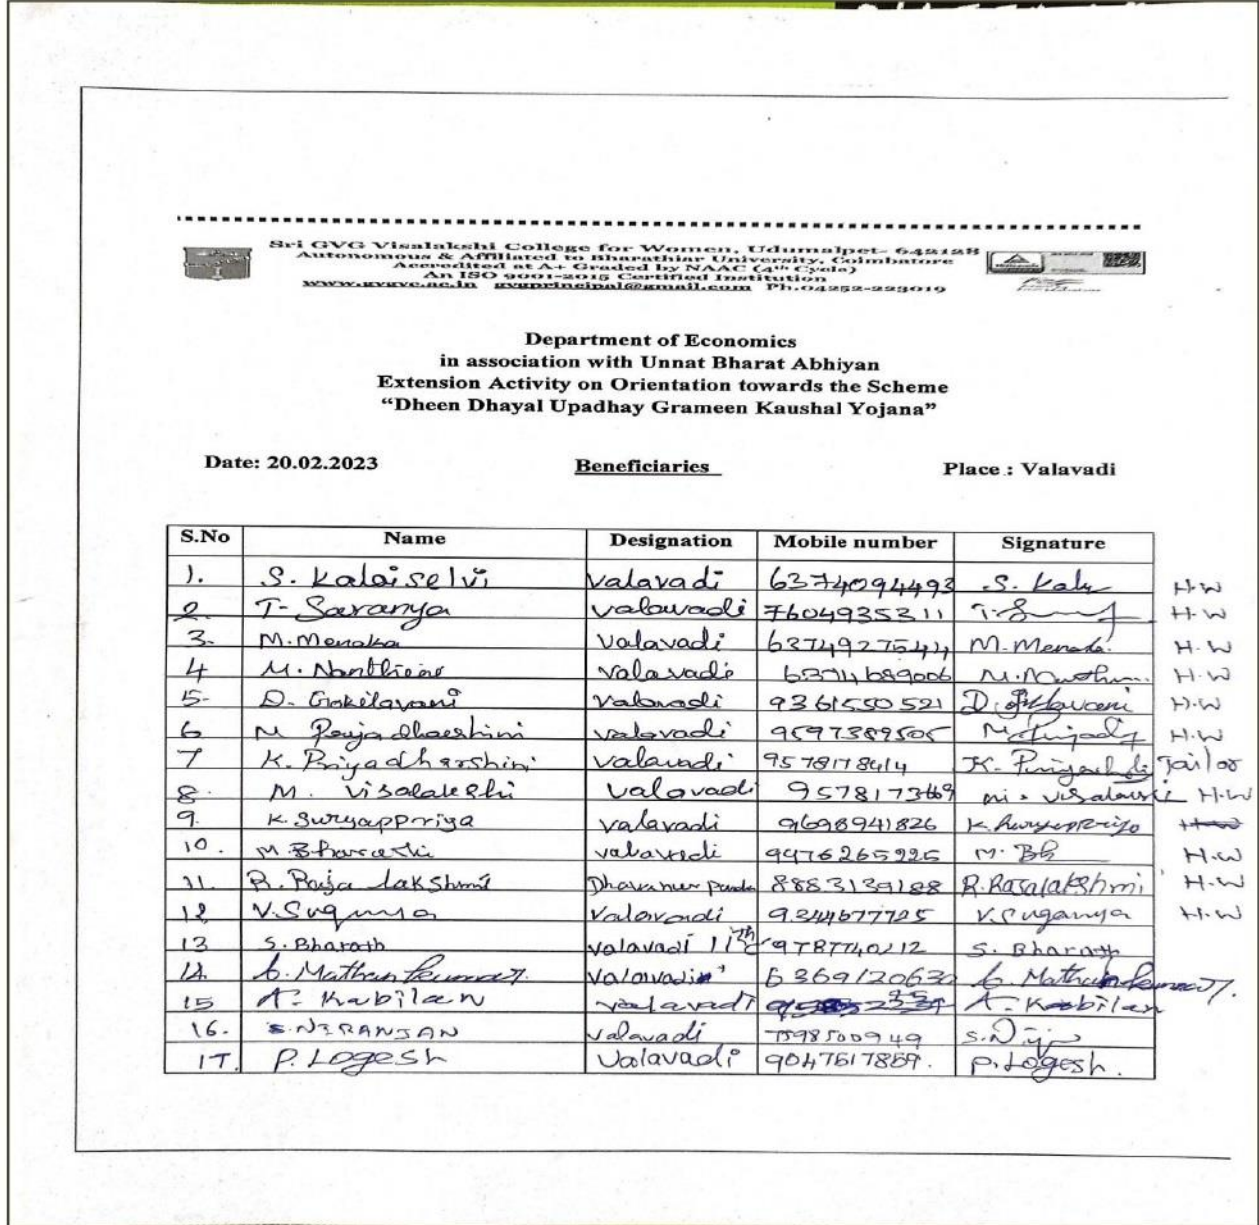 Sri GVG Visalakshi College for Women, Udumalpet- 642128
Autonomous & Affiliated to Bharathiar University, Coimbatore
Accredited at A+ Graded by NAAC (4th Cycle)
An ISO 9001-2015 Certified Institution
www.gvgvc.ac.in gvgprincipal@gmail.com Ph.04252-223019
Department of Economics
in association with Unnat Bharat Abhiyan
Extension Activity on Orientation towards the Scheme
“Dheen Dhayal Upadhay Grameen Kaushal Yojana”
Date: 20.02.2023 Beneficiaries Place : Valavadi
S.No Name Designation Mobile number Signature
1. S. Kalaiselvi Valavadi 6374094493 H.W
2. T- Saranya Valavadi 7604935311 H.W
3. M.Menaka Valavadi M.Menaka H.W
4 M. Valavadi H.W
5- D. Gokilavani Valavadi 9361550521 H.W
6 M Valavadi H.W
7 K. Priyadharshini Valavadi 9578178414 Tailor
8. M. Visalakshi Valavadi H.W
9. K. Suryappriya Valavadi 9698941826
10. M. Bharathi Valavadi H.W
11. R. Raja lakshmi 8883139188 R.Rajalakshmi H.W
12 V. Suganya Valavadi 9344677725 V.Suganya H.W
13 S. Bharath Valavadi 9787740212 S. Bharath
14. G. Mathan kumar. Valavadi 6369120630 G. Mathan kumar.
15 A. Kabilan Valavadi A. Kabilan
16. S. NIRANJAN Valavadi 7598500949
17. P. Logesh Valavadi 9047617859. P. Logesh.